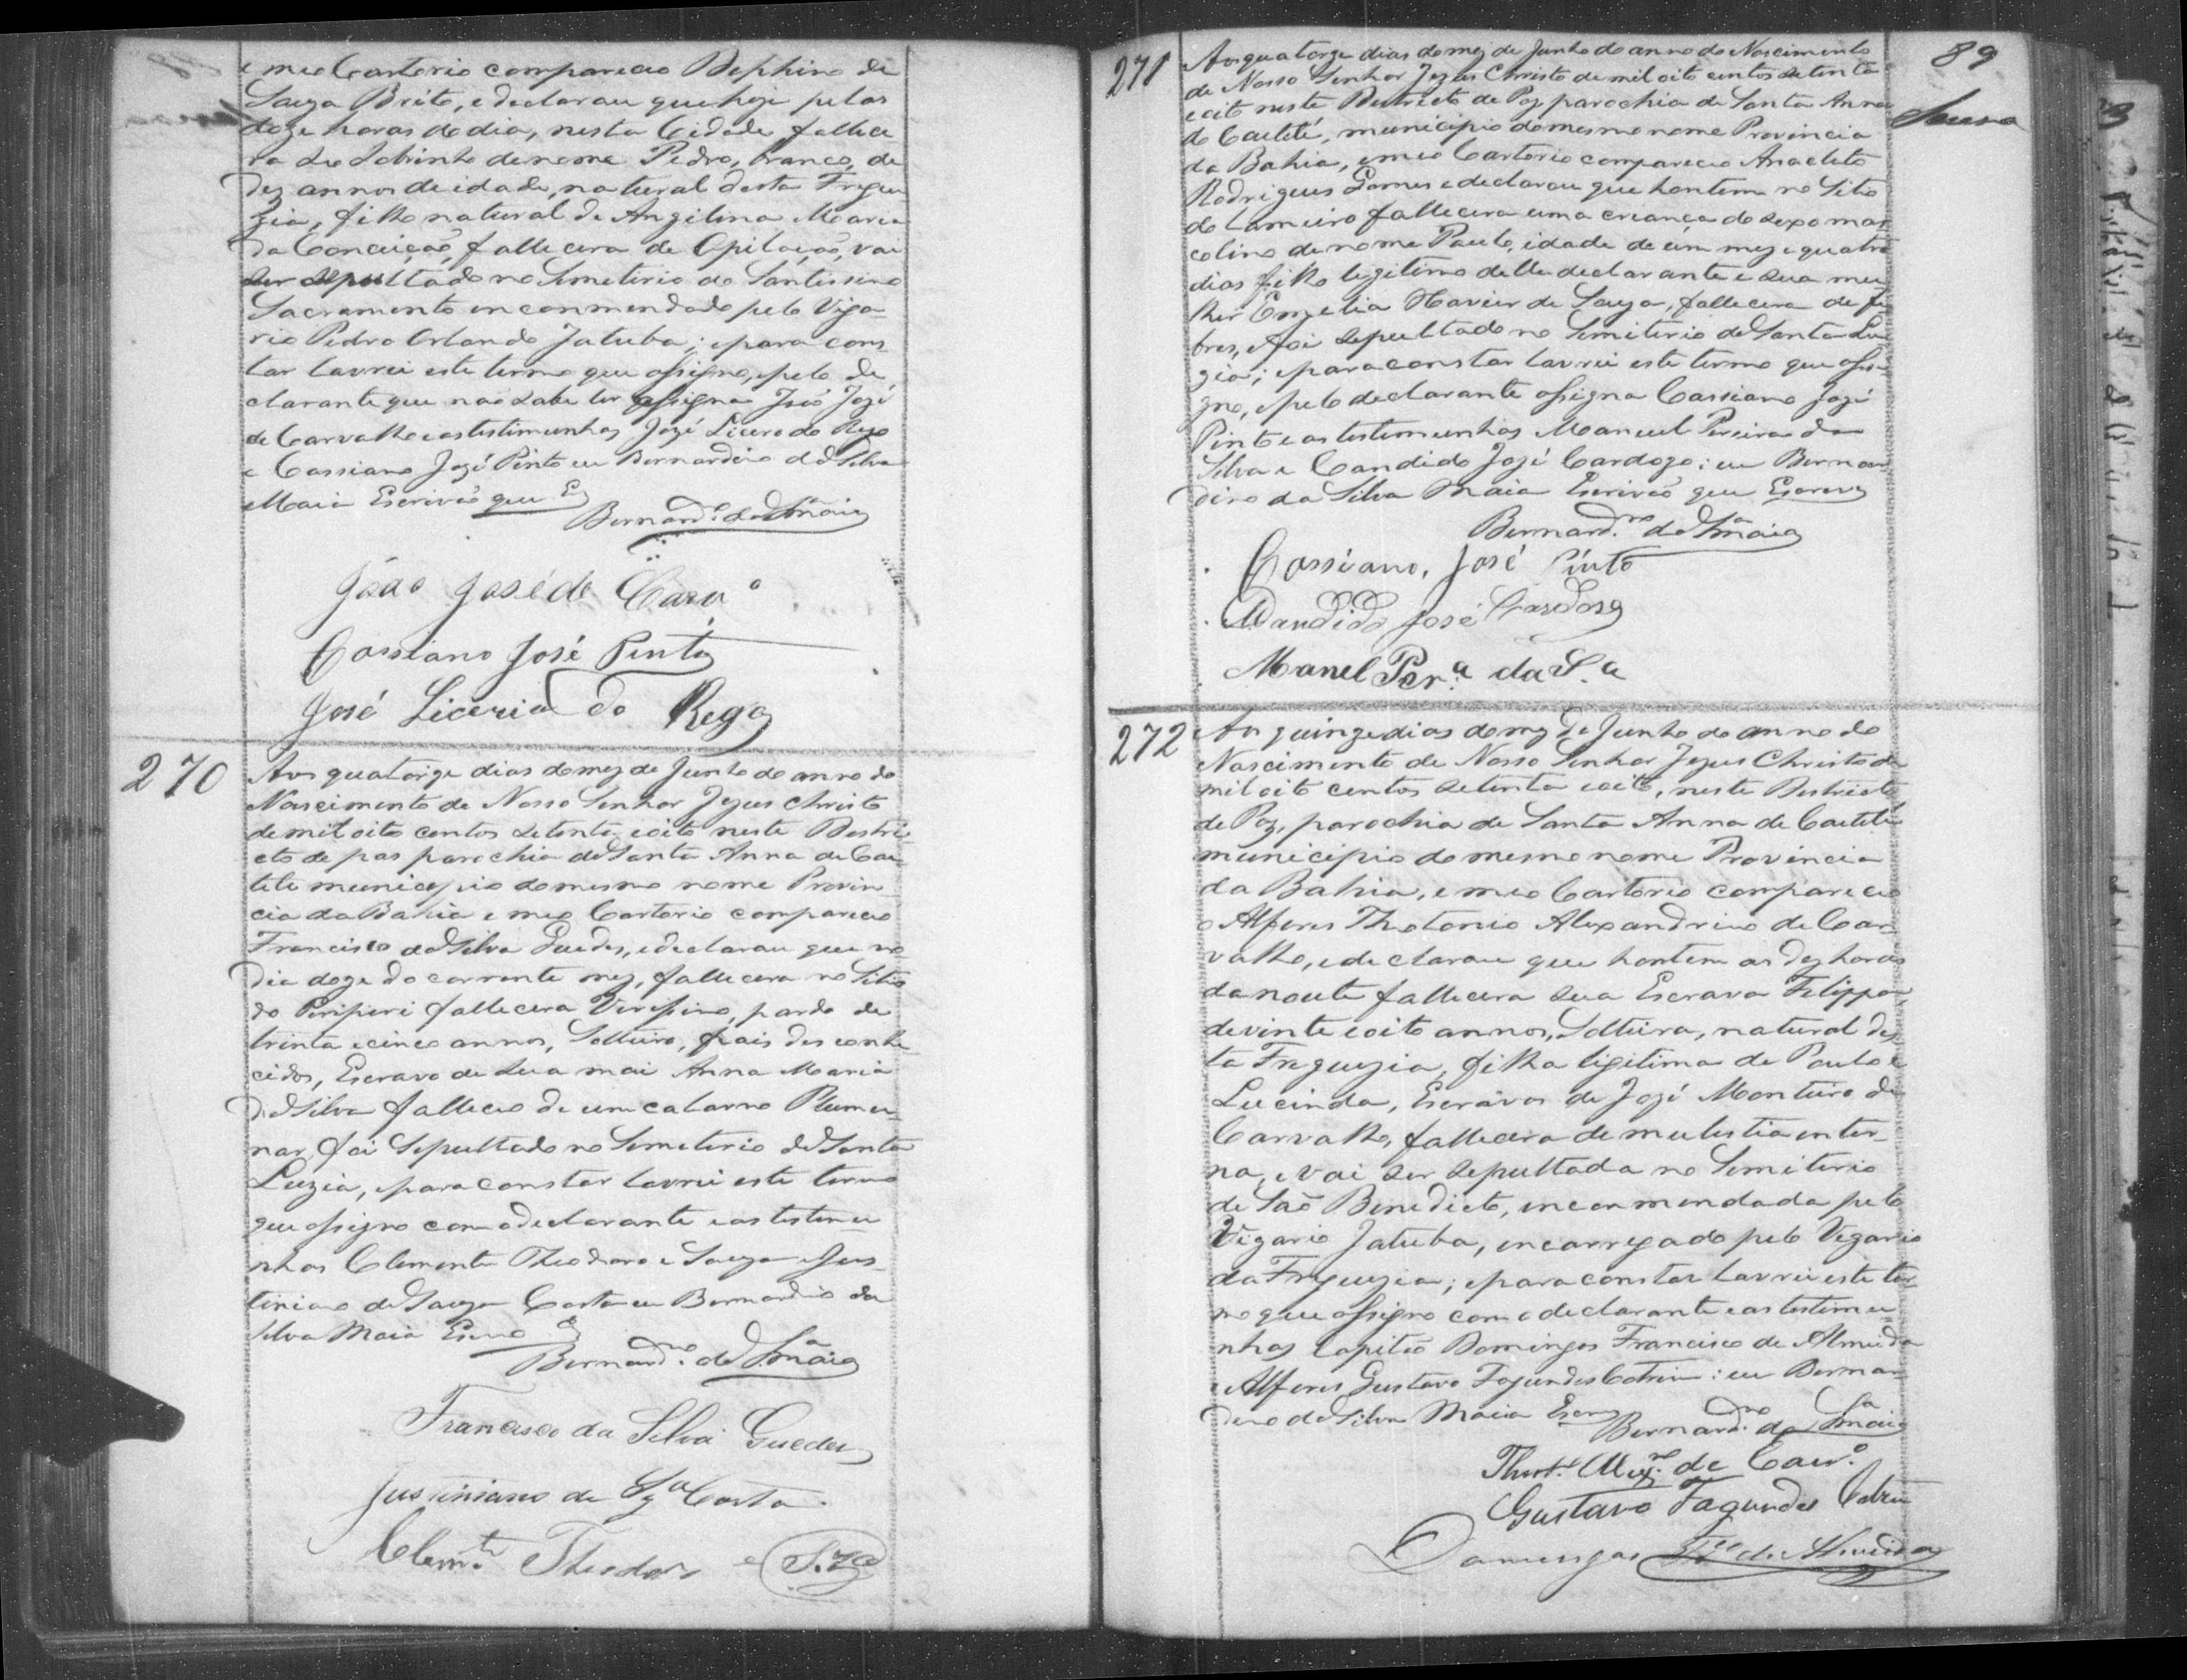 e meo Cartorio compareceo Delphino de
Souza Brito, e declarou que hoje pelas
doze horas do dia, nesta Cidade fallece
ra seo Sobrinho de nome Pedro, branco, de
Dez annos de idade, natural desta Fregue
zia, filho natural de Angelina Maria
da Conceição, fallecera de Opilação, vai
ser sepultado no Semeterio do Santissimo
Sacramento enconmendado pelo Viga
rio Pedro Orlando Jatuba; e para cons
tar lavrei este termo que assigno, e pelo de
clarante que não sabe ler assigna João Jozé
de Carvalho e as testimunhas Jozé Licerio do Rego
e Cassiano Jozé Pinto eu Bernardino da Silva
Maia Escrivão que Es
Bernardo. da Sa Maia
João José de Caro
Cassiano José Pinto
José Licerio do Rego
270
Aos quatorze dias do mez de Junho do anno do
Nascimento de Nosso Senhor Jezus Christo
de mil oito centos setenta e oito neste Destri
cto de pas parochia de Santa Anna de Cae
tete municipio do mesmo nome Provin
cia da Bahia e meo Cartorio compareceo
Francisco da Silva Guedes, e declarou que no
Dia doze do corrente mez, fallecera no Sitio
do Periperi fallecera Virissimo, pardo de
trinta e cinco annos, Solteiro, pais desconhe
cidos, Escravo de sua mai Anna Maria
da Silva falleceo de um catarro Plumu
nar, foi Sepultado no Semeterio de Santa
Luzia, e para constar lavrei este termo
que assigno com o declarante e as testemu
nhas Clemente Theodoro e Souza e Jus
tiniano de Souza Costa eu Bernardino da
Silva Maia Escro
Bernardno. da Sa Maia
Francisco da Silva Guedes
Justiniano de Sza Costa.
Clemte Theodoro e Sza
89
Sousa
271
Aos quatorze dias do mez de Junho do anno do Nascimento
de Nosso Senhor Jezus Christo de mil oito centos setenta
e oito neste Destricto de Paz parochia de Santa Anna
do Caeteté, municipio do mesmo nome Provincia
da Bahia, e meo Cartorio compareceo Anacleto
Rodrigues Gomes e declarou que hontem no Sitio
do Lameiro fallecera uma criança do sexo mas
colino de nome Paulo, idade de um mez e quatro
dias filho legitimo delle declarante e sua mu
lher Emzelia Xavier de Souza, fallecera de fe
bres, e foi sepultado no Semiterio de Santa Lu
zia; e para constar lavrei este termo que assi
gno, e pelo declarante assigna Cassiano Jozé
Pinto e as testemunhas Manoel Pereira da
Silva e Candido Jozé Cardozo: eu Bernar
dino da Silva Maia Escrivão que Escrevy
Bernardno. da Sa Maia
Cassiano, José Pinto
Candido José Cardoso
Manel Pera. da Sa.
272
Aos quinze dias do mez de Junho do anno do
Nascimento de Nosso Senhor Jezus Christo de
mil oito centos setenta e oito, neste Destricto
de Paz, parochia de Santa Anna de Caeteté
municipio do mesmo nome Provincia
da Bahia, e meo Cartorio compareceo
o Alferes Thotonio Alexandrino de Car
valho, e declarou que hontem as dez horas
da noute fallecera sua Escrava Felippa,
de vinte e oito annos, Solteira, natural des
ta Freguezia, filha ligitima de Paulo e
Lucinda, Escravos de Jozé Monteiro de
Carvalho, fallecera de mulestia enter
na, e vai ser sepultada no Semiterio
de São Benedicto, enconmendada pelo
Vigario Jatuba, encarregado pelo Vegario
da Freguezia; e para constar lavrei este ter
mo que assigno com o declarante e as testemu
nhas Capitão Domingos Francisco de Almeida
e Alferes Gustavo Fagundes Cotrim: eu Bernar
dino da Silva Maia Escrevy
Bernardno. da Sa Maia
Thoto. Alexe. de Caro.
Gustavo Fagundes Cotrim
Domingos Fco de Almeida